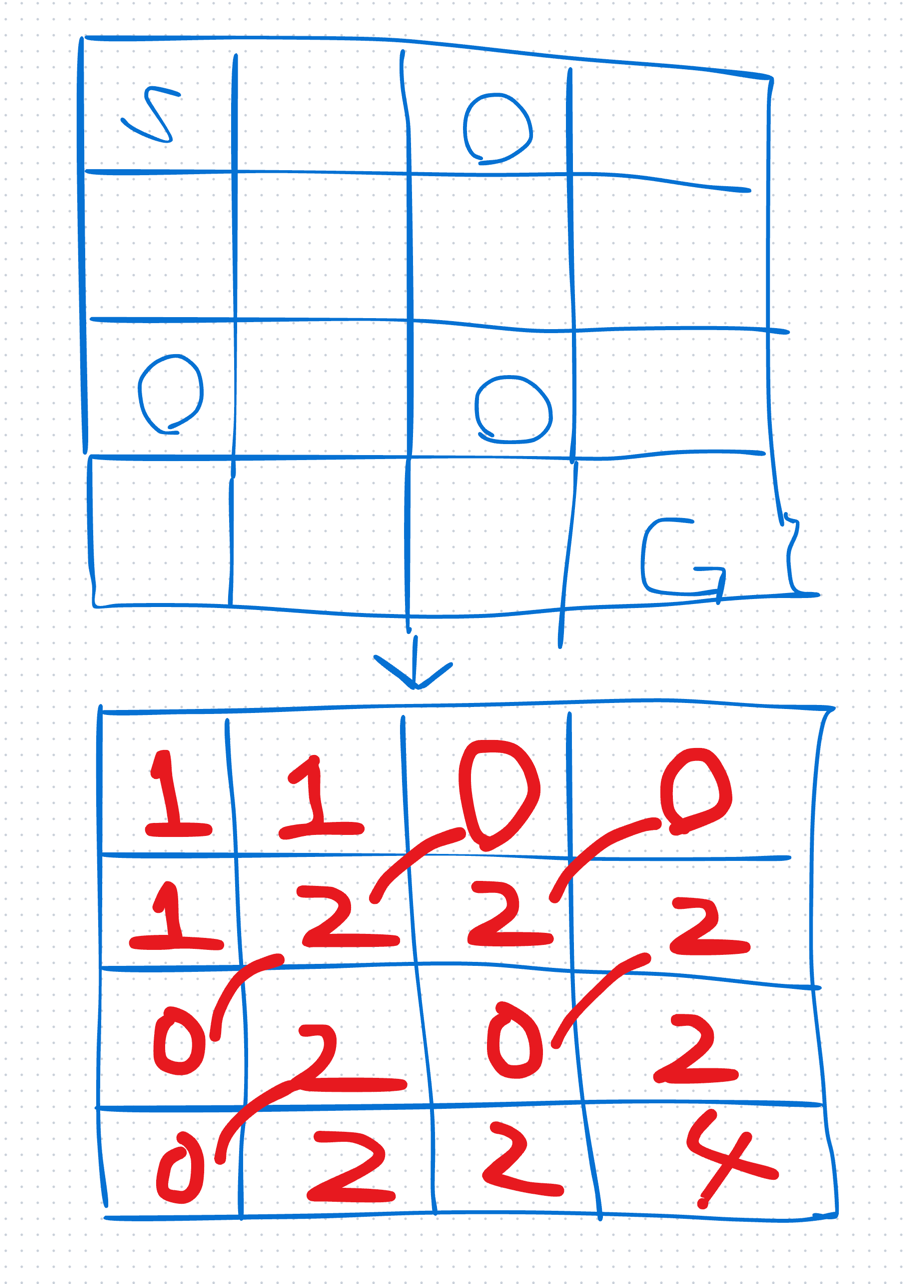 S O
O O
G
1 1 0 0
1 2 2 2
0 2 0 2
0 2 2 4